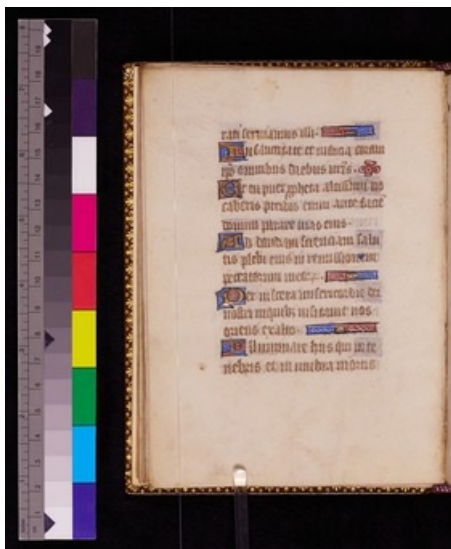 rati seruiamus illi.
In sanctitate et iusticia coram
ipo omnibus diebus nris.
Et tu puer ppheta altissimi uo
caberis preibis enim ante facie
domini parare uias eius.
Ad dandam scienciam salu
tis plebi eius in remissionem
peccatorum
Per uiscera misericordie dei
nostri in quibus uisitauit nos
oriens ex alto.
Illuminare hiis qui in te
nebris et in umbra mortis